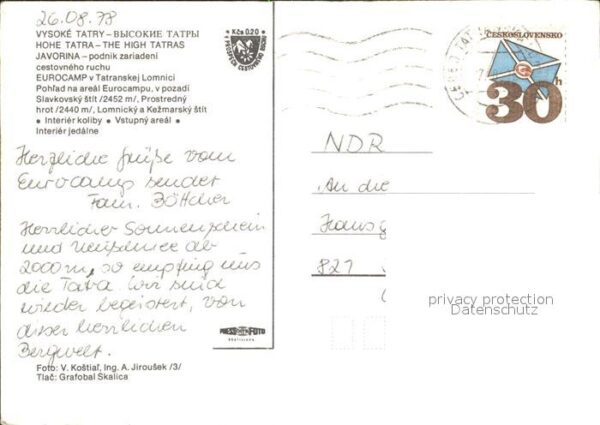 26.08.78
VYSOKÉ TATRY – ВЫСОКИЕ ТАТРЫ
HOHE TATRA – THE HIGH TATRAS
JAVORINA – podnik zariadení
cestovného ruchu
EUROCAMP v Tatranskej Lomnici
Pohľad na areál Eurocampu, v pozadí
Slavkovský štít /2452 m/, Prostredný
hrot /2440 m/, Lomnický a Kežmarský štít
• Interiér koliby • Vstupný areál •
Interiér jedálne
Herzliche Grüße vom
Eurocamp sendet
Fam. Böttcher
Herrlicher Sonnenschein
und Neuschnee ab
2000m, so empfing uns
die Tatra. Wir sind
wieder begeistert, von
dieser herrlichen
Bergwelt.
Foto: V. Koštiaľ, Ing. A. Jiroušek /3/
Tlač: Grafobal Skalica
Kčs 0,20
PRESSFOTO
BRATISLAVA
ČESKOSLOVENSKO
30h
NDR
An die
821
privacy protection
Datenschutz